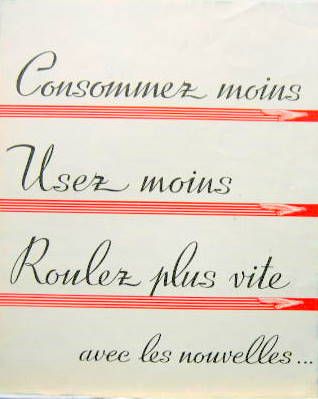 Consommez moins
Usez moins
Roulez plus vite
avec les nouvelles...